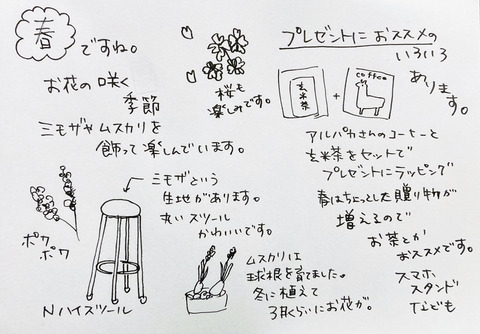 春ですね。
お花の咲く
季節
ミモザやムスカリを
飾って楽しんでいます。
桜も
楽しみです。
ミモザという
生地があります。
丸いスツール
かわいいです。
ポワ
ポワ
Nハイスツール
ムスカリは
球根を育てました。
冬に植えて
3月くらいにお花が。
プレゼントにおススメの
いろいろ
あります。
玄米茶
+
coffee
アルパカさんのコーヒーと
玄米茶をセットで
プレゼントにラッピング
春はちょっとした贈り物が
増えるので
お茶とか
おススメです。
スマホ
スタンド
なども